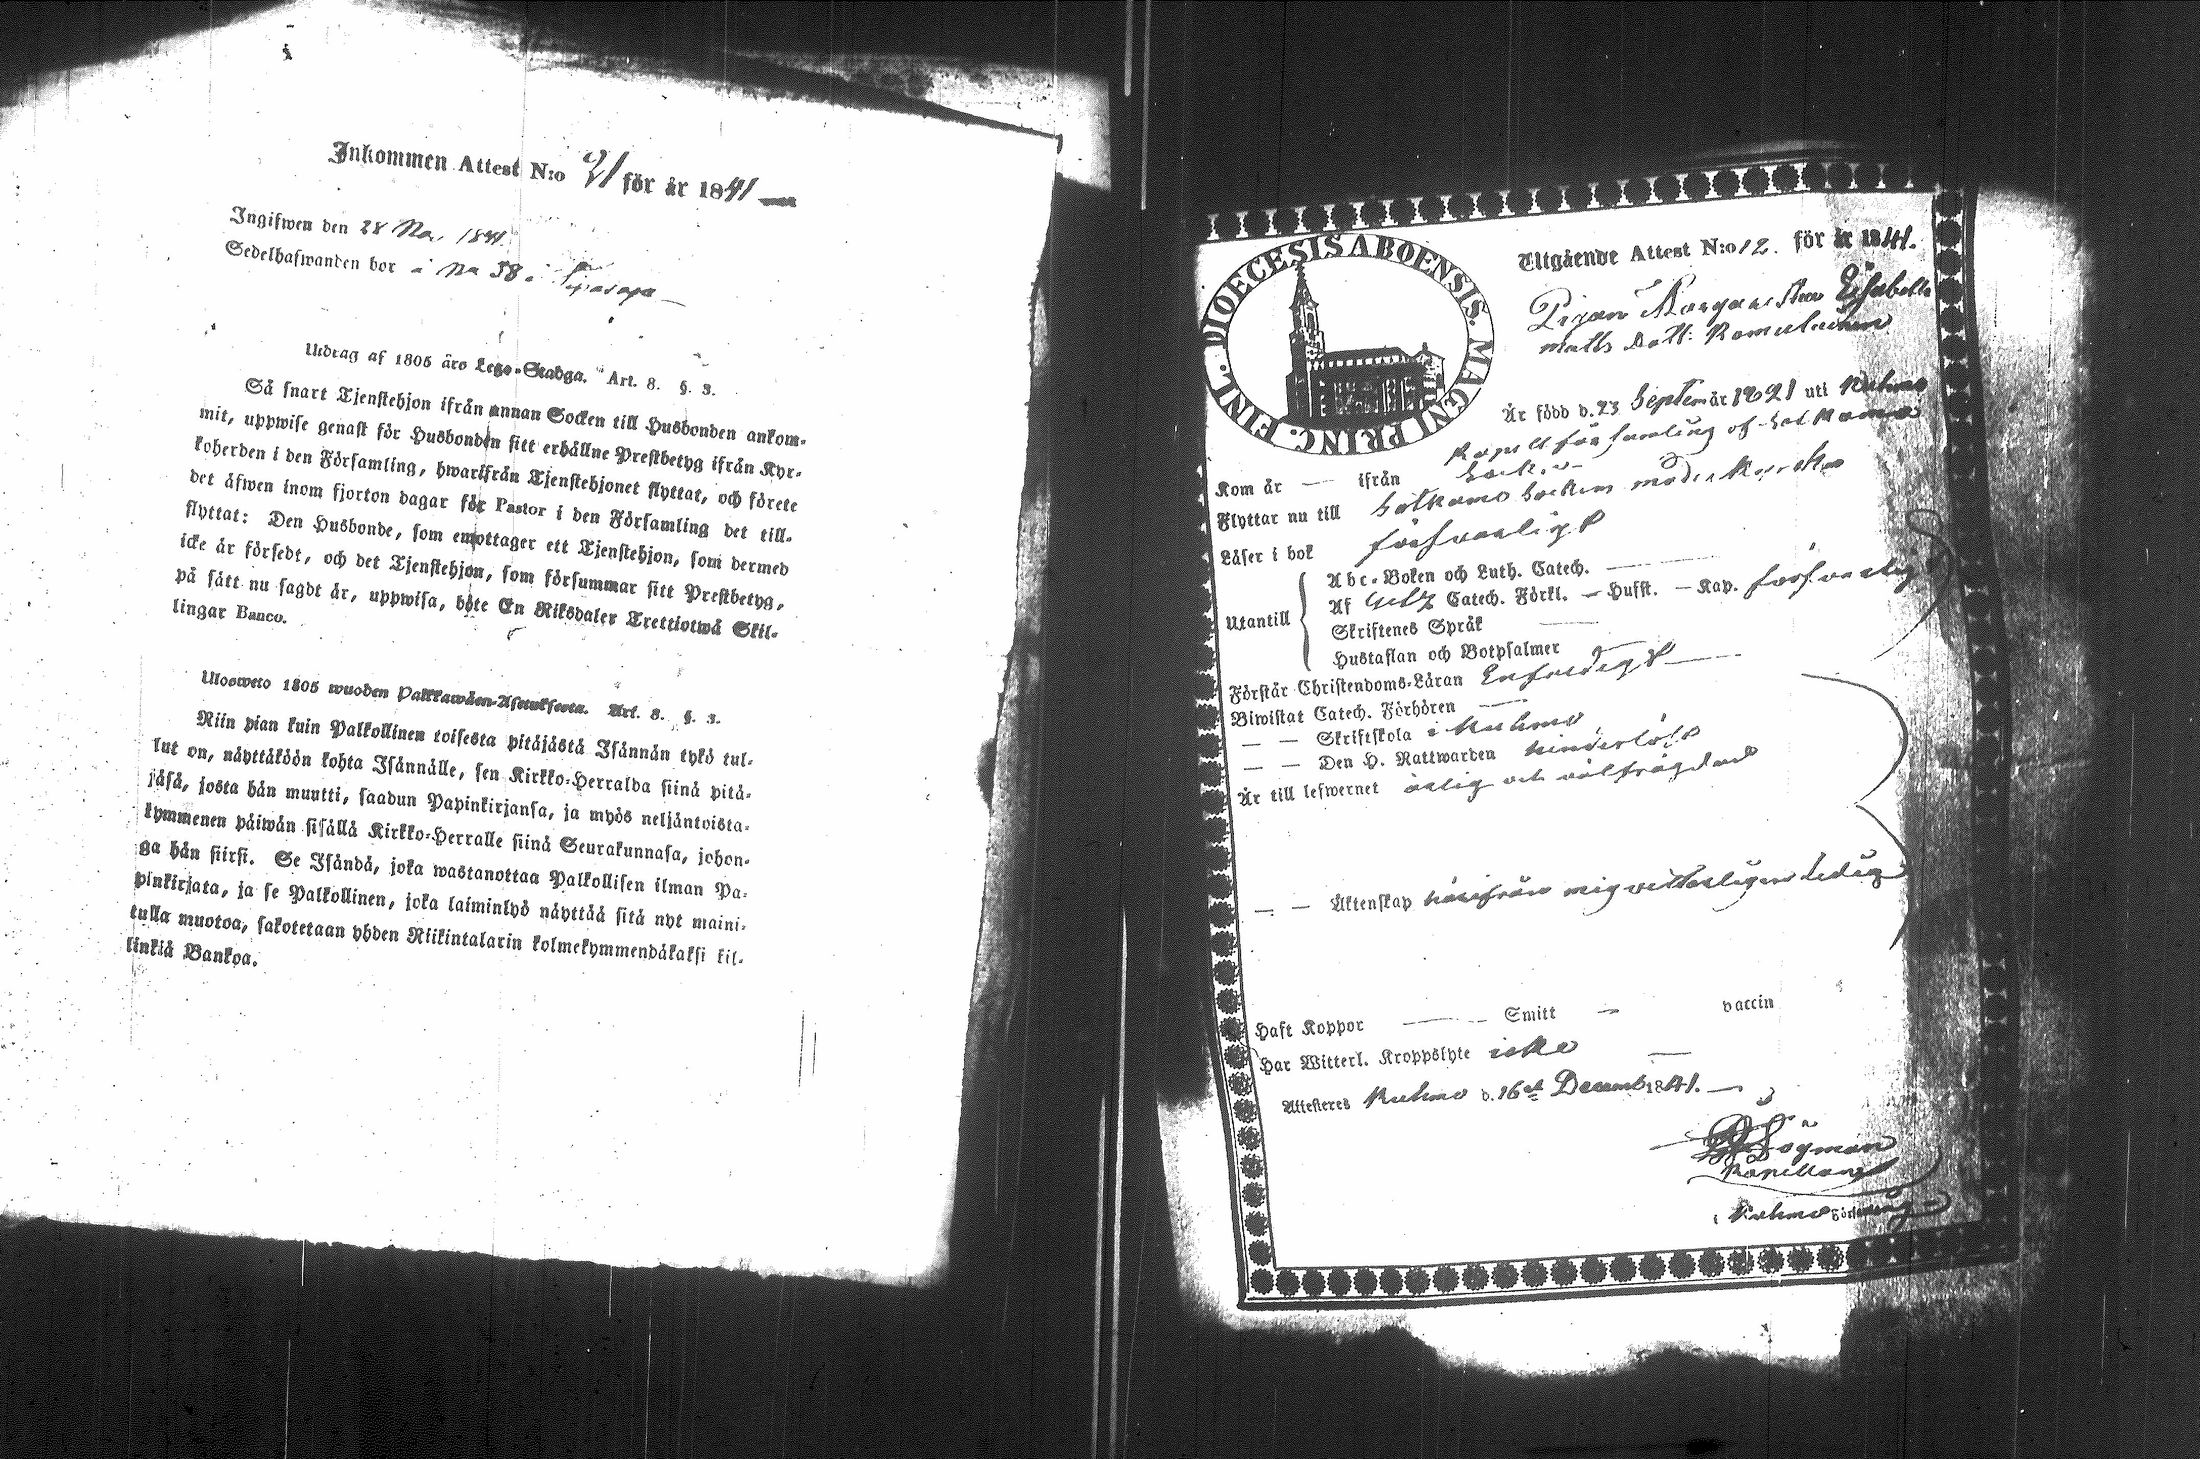 Inkommen Attest N:o 21 för år 1841
Ingifwen den 28 1841.
Sedelhafwanden bor i No 38
Utdrag af 1805 års Lego-Stadga. Art. 8. §. 3.
Så snart Tjenstehjon ifrån annan Socken till Husbonden ankom-
mit, uppwise genast för Husbonden sitt erhållne Prestbetyg ifrån Kyr-
koherden i den Församling, hwarifrån Tjenstehjonet flyttat, och förete
det äfwen inom fjorton dagar för Pastor i den Församling det till-
flyttat: Den Husbonde, som emottager ett Tjenstehjon, som dermed
icke är försedt, och det Tjenstehjon, som försummar sitt Prestbetyg,
på sätt nu sagdt är, uppwisa, böte En Riksdaler Trettiotwå Skil-
lingar Banco.
Ulosweto 1805 wuoden Palkkawäen-Asetuksesta. Art. 8. §. 3.
Niin pian kuin Palkollinen toisesta pitäjästä Isännän tykö tul-
lut on, näyttäköön kohta Isännälle, sen Kirkko-Herralda siinä pitä-
jäsä, josta hän muutti, saadun Papinkirjansa, ja myös neljäntoista-
kymmenen päiwän sisällä Kirkko-Herralle siinä Seurakunnasa, johon-
ga hän siirsi. Se Isändä, joka wastanottaa Palkollisen ilman Pa-
pinkirjata, ja se Palkollinen, joka laiminlyö näyttää sitä nyt maini-
tulla muotoa, sakotetaan yhden Riikintalarin kolmekymmendäkaksi kil-
linkiä Bankoa.
DIOECESIS ABOENSIS. MAGNI PRINC. FINL.
Utgående Attest N:o 12. för år 1841.
Pigan Elisabetha
Matts Dott:
Är född d. 23 Septem år 1821 uti Kuhmo
Kapell församling of Sotkamo
Socken
Kom år — ifrån
Flyttar nu till Sotkamo Sockens moderkyrka
Läser i bok försvarligt
Utantill
Abc-Boken och Luth. Catech. —
Af Catech. Förkl. — Hufst. — Kap. försvarligt
Skriftenes Språk —
Hustaflan och Botpsalmer
Förstår Christendoms-Läran Enfaldigt —
Biwistat Catech. Förhören —
— — Skriftskola i Kuhmo
— — Den H. Nattwarden hinderlöst
Är till lefwernet ärlig och välfrägdad
— — Äktenskap härifrån mig vetterligen ledig
Haft Koppor — Smitt — vaccin
Har Witterl. Kroppslyte icke —
Attesteres Kuhmo d. 16de Decemb 1841. —
Högman
Kapellan
i Kuhmo Församling